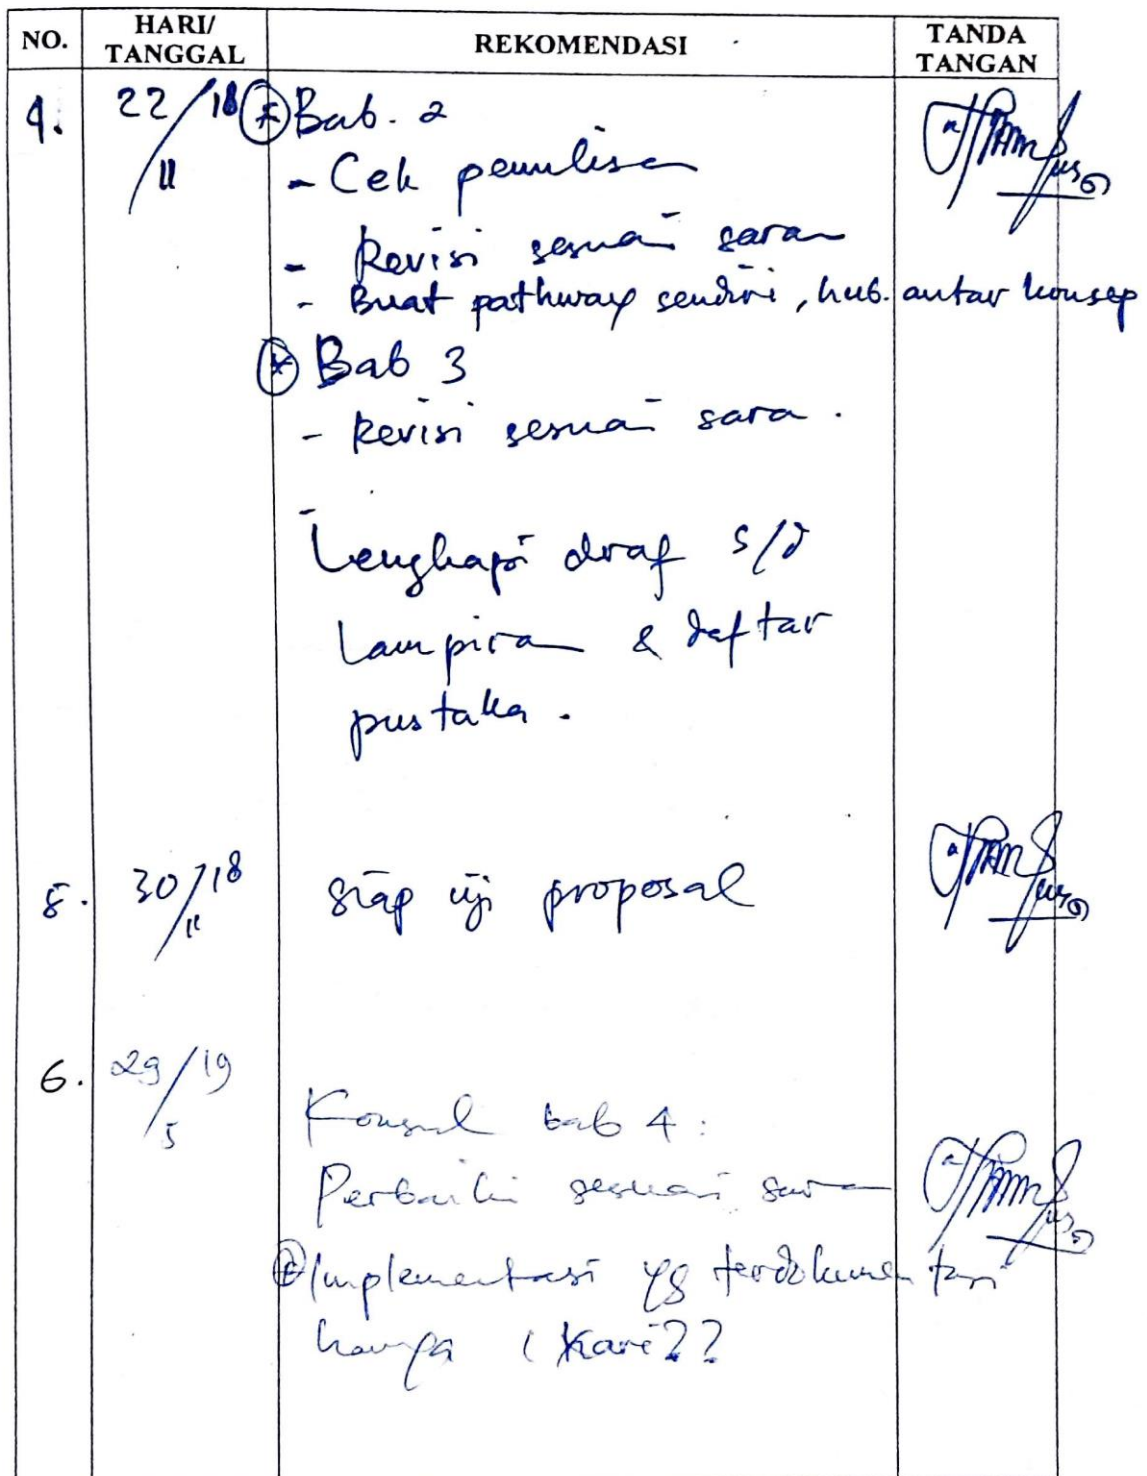 NO. HARI/ TANGGAL REKOMENDASI TANDA TANGAN
4. 22/11 18 * Bab. 2
- Cek penulisan
- Revisi sesuai saran
- Buat pathway sendiri, hub. antar konsep
* Bab 3
- Revisi sesuai saran.
- Lengkapi draf s/d
Lampiran & daftar
pustaka.
5. 30/11 18 siap uji proposal
6. 29/5 19
Konsul bab 4:
Perbaiki sesuai saran
* Implementasi yg terdokumentasi
hanya 1 hari??